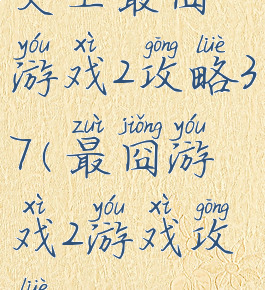 yóu xì gōng lüè
游戏2攻略3
zuì jiǒng yóu
7(最囧游
xì yóu xì gōng
戏2游戏攻
lüè